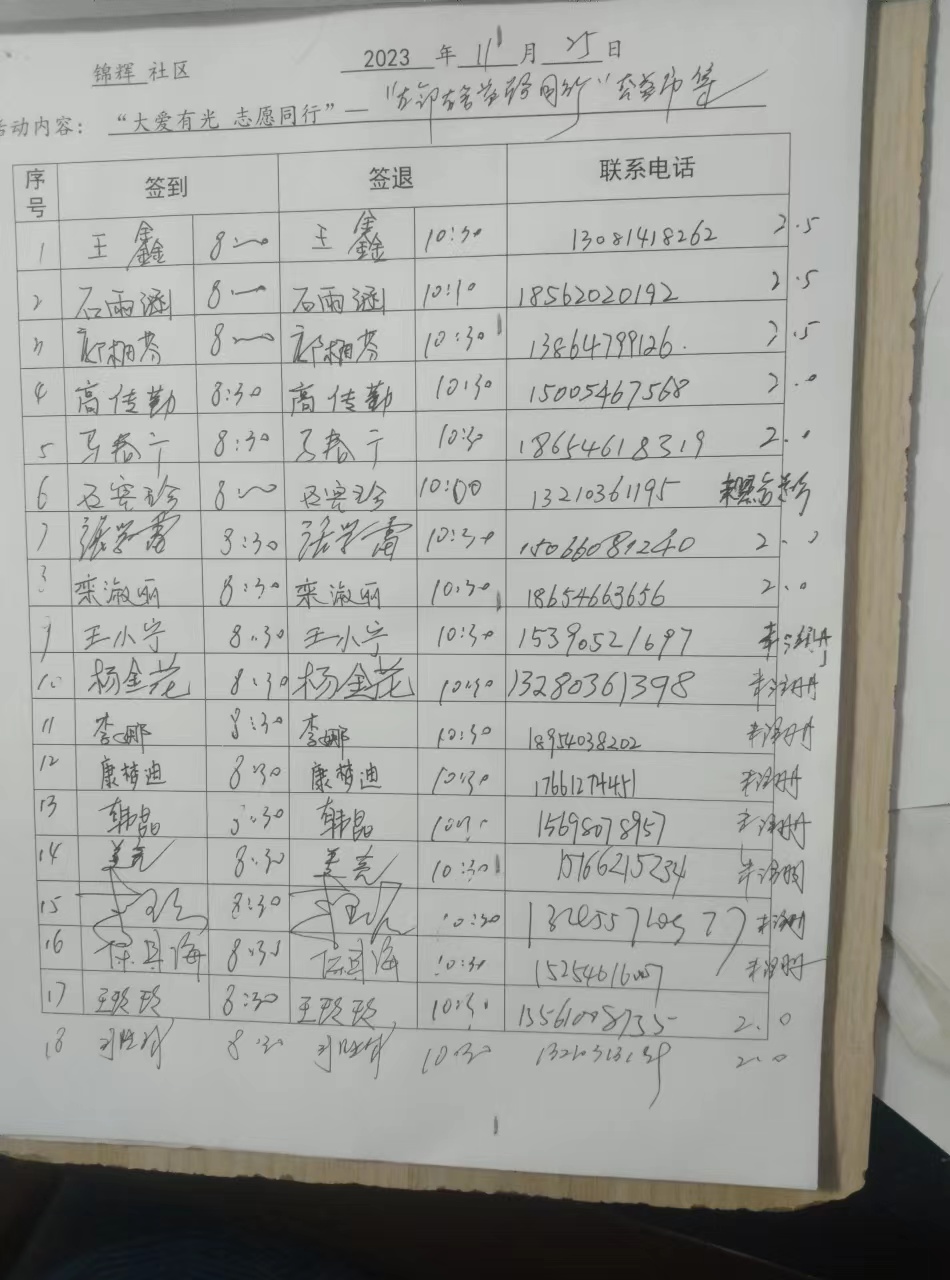 锦辉 社区
2023 年 11 月 25 日
活动内容： “大爱有光 志愿同行”—
序号 签到 签退 联系电话
1 王鑫 8:00 王鑫 10:30 13081418262 2.5
2 石雨涵 8:00 石雨涵 10:30 18562020192 2.5
3 8:00 10:30 13864799126 2.5
4 高传勤 8:30 高传勤 10:30 15005467568 2.0
5 马春宁 8:30 马春宁 10:30 18654618319 2.0
6 8:00 10:00 13210361195
7 张学雷 8:30 张学雷 10:30 15066081240 2.0
8 栾淑丽 8:30 栾淑丽 10:30 18654663656 2.0
9 王小宁 8:30 王小宁 10:30 15390521697 未注册
10 杨金花 8:30 杨金花 10:30 13280361398 未注册
11 李娜 8:30 李娜 10:30 18954038202 未注册
12 康梦迪 8:30 康梦迪 10:30 17661274451 未注册
13 韩晶 8:30 韩晶 10:30 15698078957 未注册
14 姜亮 8:30 姜亮 10:30 15166215234 未注册
15 8:30 10:30 未注册
16 8:30 10:30 未注册
17 王玲玲 8:30 王玲玲 10:30 2.0
18 8:30 10:30 2.0